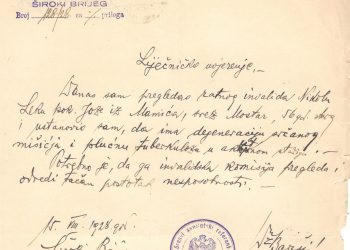 ŠIROKI BRIJEG
Broj 128/28 sa priloga
Liječničko uvjerenje.-
Danas sam pregledao ratnog invalida Nikolu
Leku pok. Jože iz Mamića, srez Mostar, 36 god. star
i ustanovio sam, da ima degeneraciju srčanog
mišićja i plućnu tuberkulozu u aktivnom stanju.
Potrebno je, da ga invalidska komisija pregleda i
odredi tačan postotak nesposobnosti.-
15. VIII. 1928 god.
Široki Brijeg